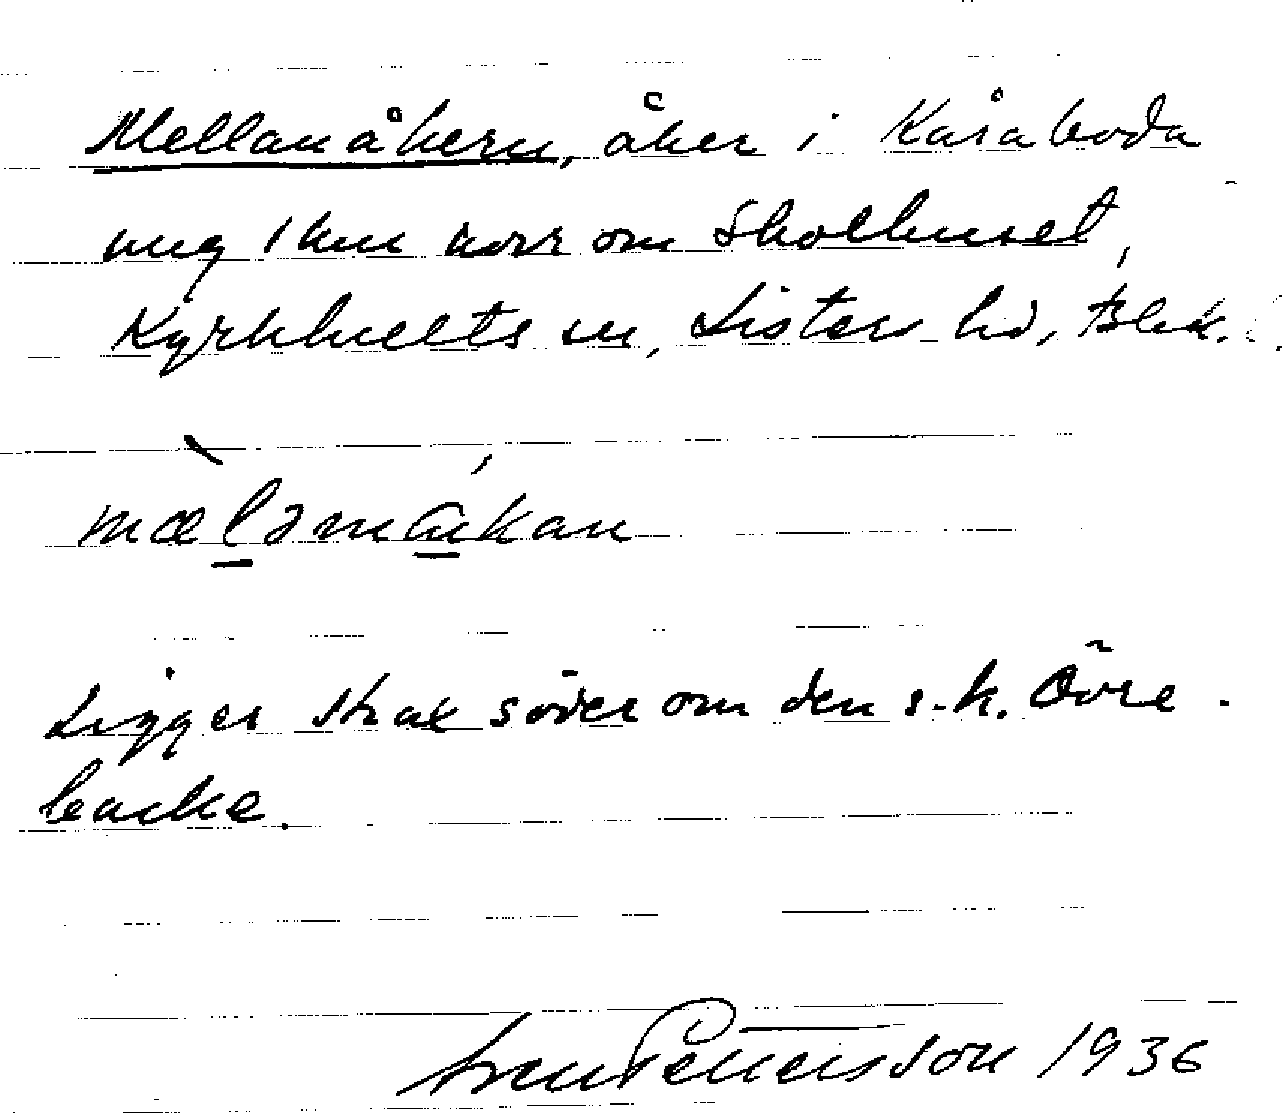 Mellanåkern, åker i Kåraboda
ung 1 km norr om Skolhuset,
Kyrkhults sn, Listers hd, Blek.
mæ̀lənmákan
Ligger strax söder om den s.k. Övre-
backe.
Sven Pettersson 1936